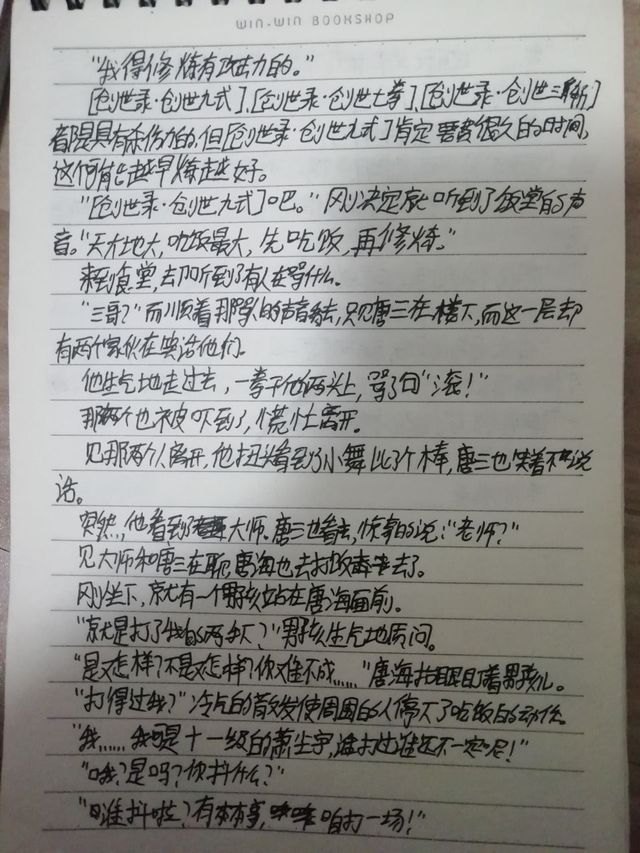 WIN-WIN BOOKSHOP
"我得修炼有攻击力的。"
[创世录·创世九式],[创世录·创世七拳],[创世录·创世三斩]
都是具有杀伤力的,但[创世录·创世九式]肯定要费很久的时间,
这个可能越早炼越好。
"[创世录·创世九式]吧。"刚决定就听到了饭堂的声
音。"天大地大,吃饭最大,先吃饭,再修炼。"
来到食堂,去听到了有人在骂什么。
"三哥?"而顺着那的声音去,只见唐三在楼下,而这一层却
有两个家伙在笑话他们。
他生气地走过去,一拳干他俩头上,骂了句"滚!"
那两个也被吓到了,慌忙离开。
见那两个人离开,他扭头看到小舞比了个棒,唐三也笑着不说
话。
突然,他看到了大师.唐三也看去,惊讶的说:"老师?"
见大师和唐三在聊,唐海也去打饭去了。
刚坐下,就有一个男孩站在唐海面前。
"就是打了我的两手下?"男孩生气地质问。
"是又怎样?不是又怎样?你难不成……"唐海抬眼盯着男孩儿。
"打得过我?"冷气的散发使周围的人停下了吃饭的动作。
"我……我可是十一级的萧尘宇,谁打过谁还不一定呢!"
"哦?是吗?你抖什么?"
"谁抖啦?有本事,咱打一场!"